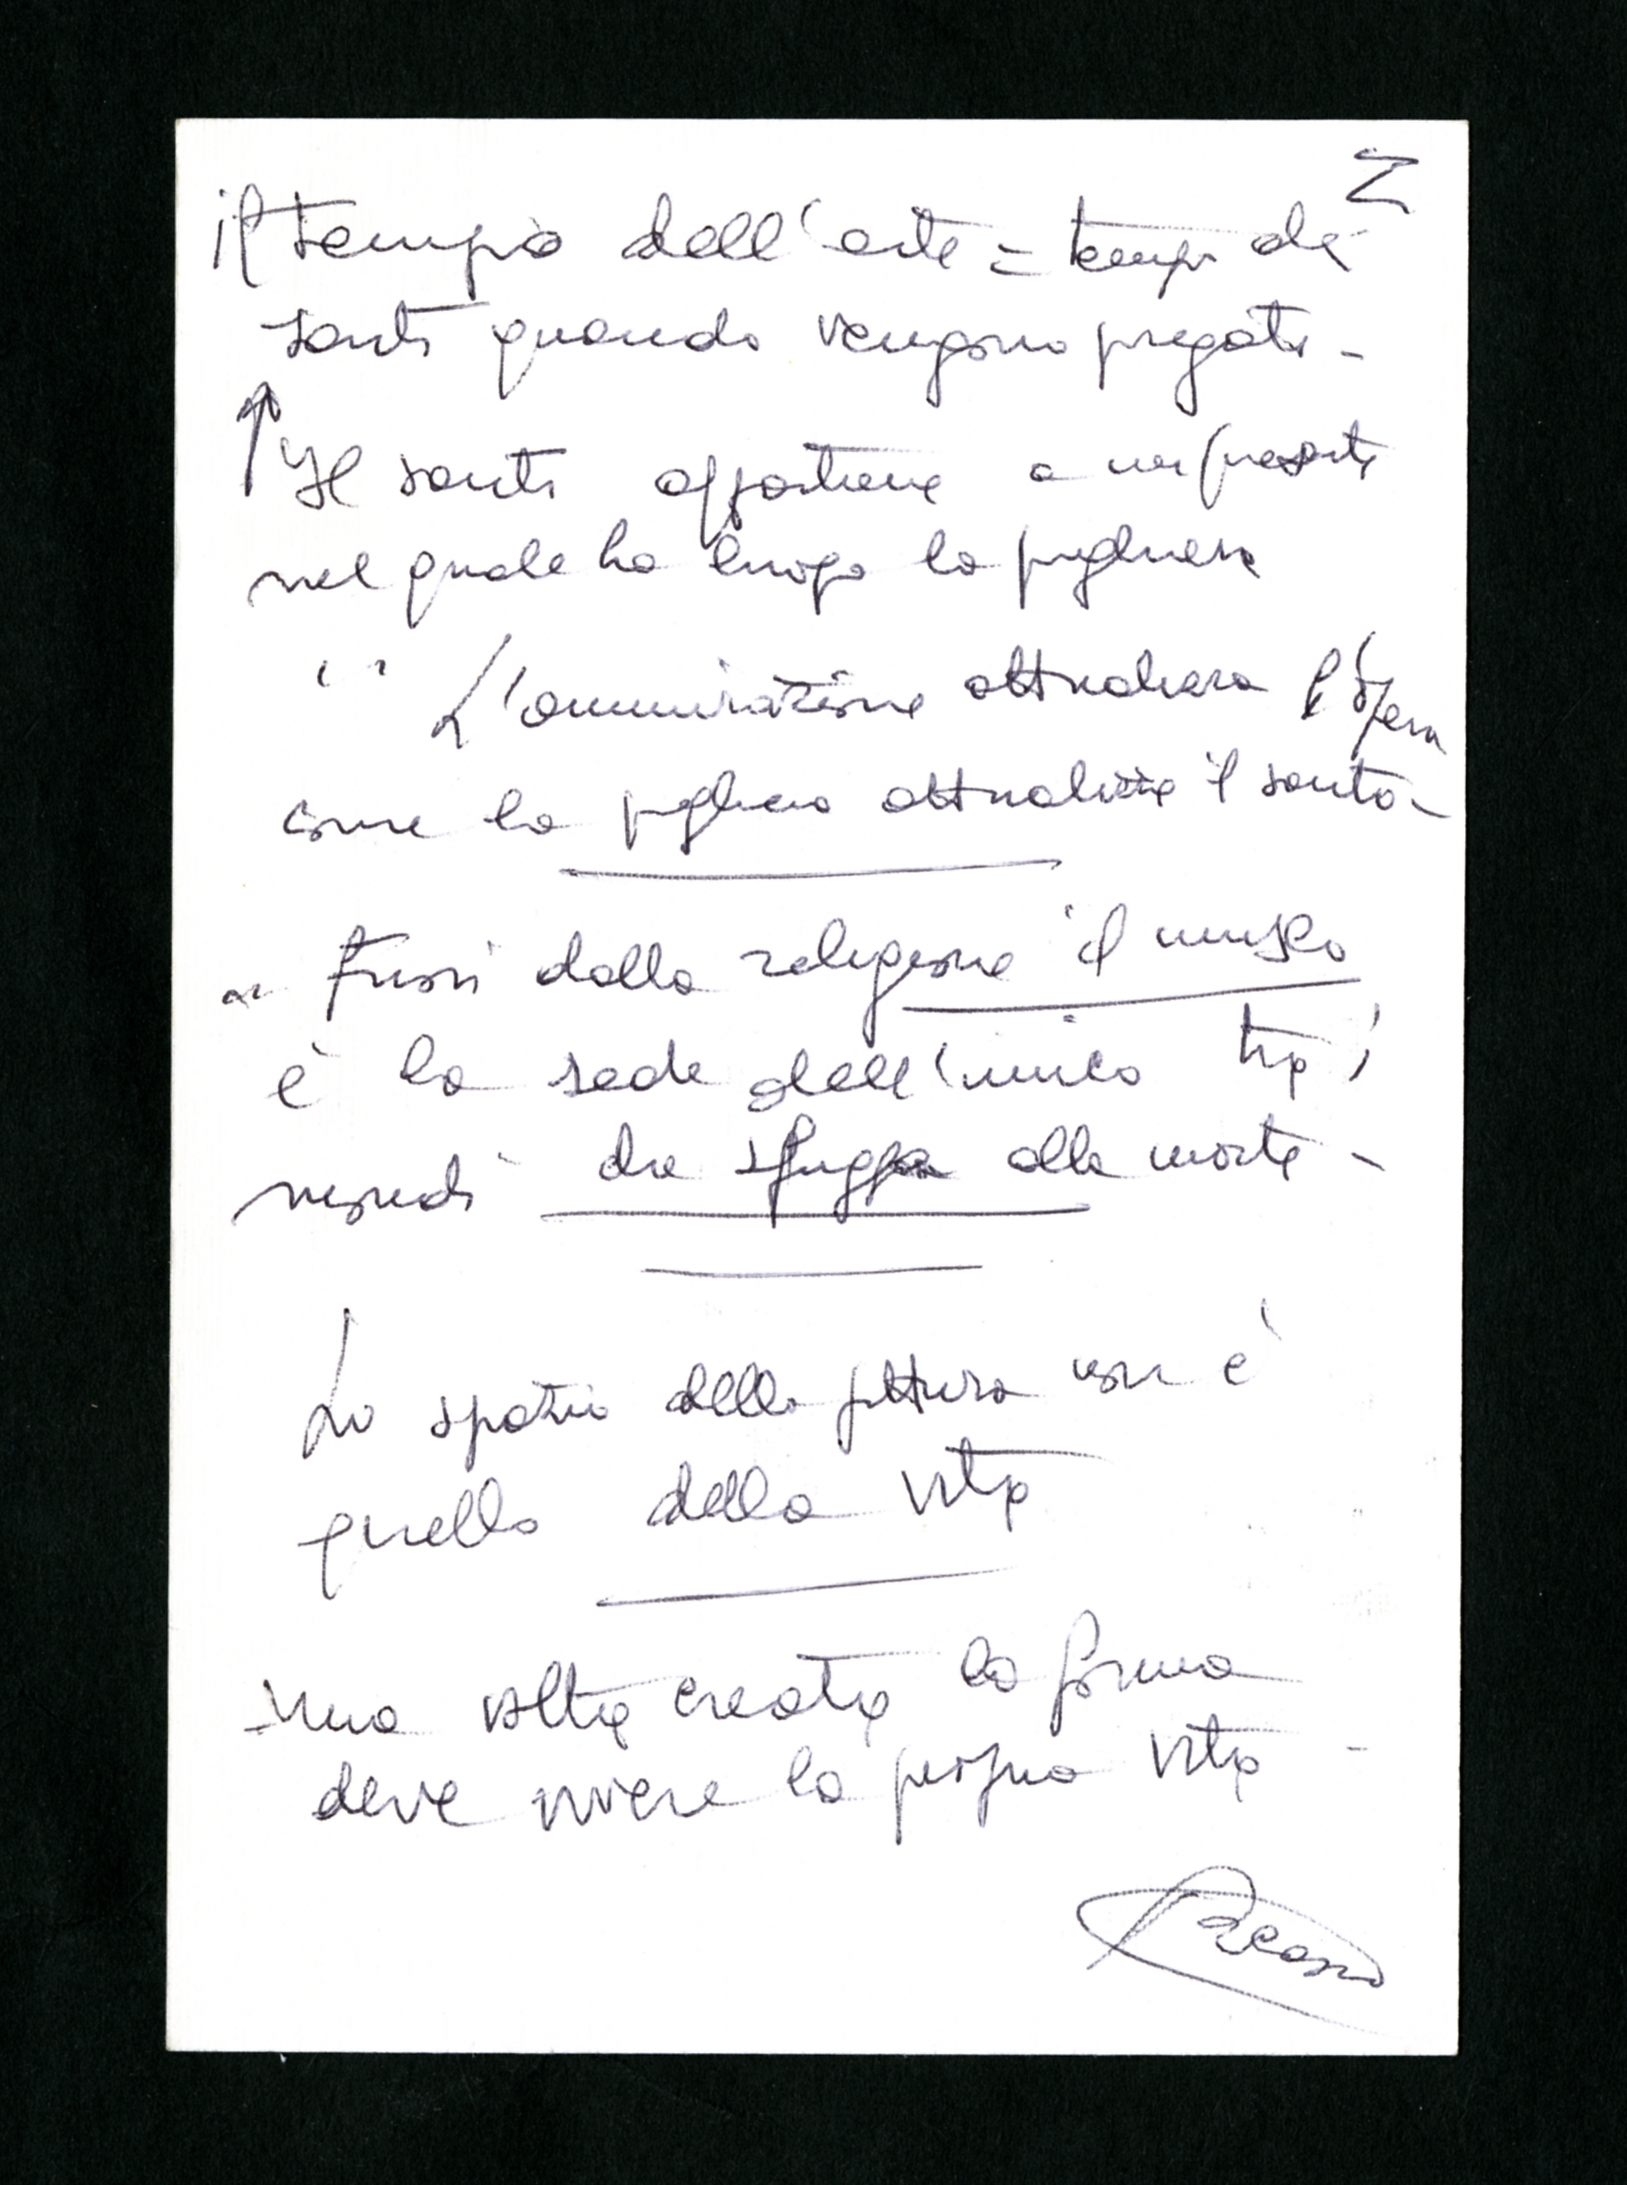 il tempo dell'arte = tempo dei
santi quando vengono pregati -
Il santo appartiene a un presente
nel quale ha luogo la preghiera
L'ammirazione attualizza l'opera
come la preghiera attualizza il santo -
Fuori dalla religione il museo
è la sede dell'unico
mondo che sfugga alla morte -
Lo spazio della pittura non è
quello della vita
- Una volta creata la forma
deve vivere la propria vita -